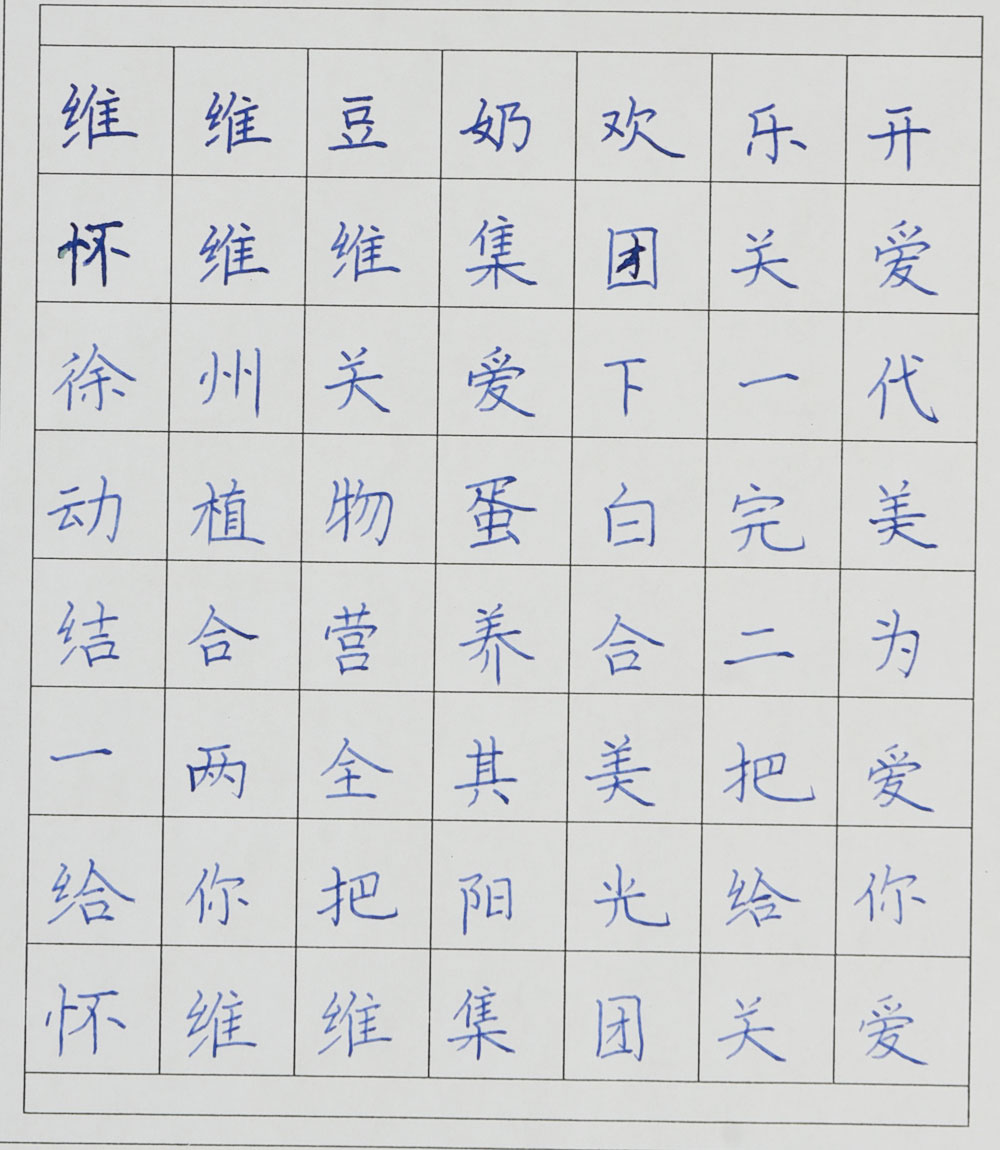 维维豆奶欢乐开
怀维维集团关爱
徐州关爱下一代
动植物蛋白完美
结合营养合二为
一两全其美把爱
给你把阳光给你
怀维维集团关爱